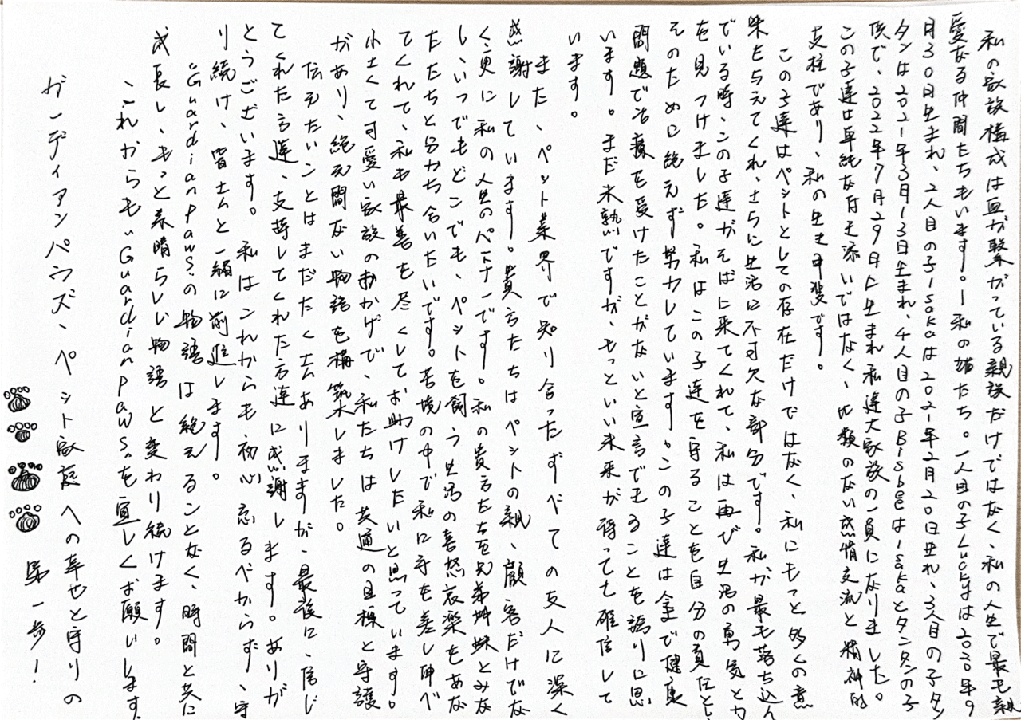 私の家族構成は血が繋がっている親族だけではなく、私の人生で最も親
愛なる仲間たちもいます。ー私の猫たち。一人目の子Luckyは2020年9
月30日生まれ、2人目の子isokaは2021年2月20日生れ、3人目の子タ
タンは2021年3月13日生まれ、4人目の子BisbeeはisokaとタンタンのK子
供で、2022年7月29日に生まれ私達大家族の一員になりました。
この子達は単純な付き添いではなく、比類のない感情交流と精神的
支柱であり、私の生き甲斐です。
この子達はペットとしての存在だけではなく、私にもっと多くの意
味を与えてくれ、さらに生活に不可欠な部分です。私が最も落ち込ん
でいる時、この子達がそばに来てくれて、私は再び生活の勇気と力
を見つけました。私はこの子達を守ることを自分の責任とし
そのために絶えず努力しています。この子達は今まで健康
問題で治療を受けたことがないと宣言できることを誇りに思
います。まだ未熟ですが、もっといい未来が待ってて確信して
います。
また、ペット業界で知り合ったすべての友人に深く
感謝しています。貴方たちはペットの親、顧客だけでな
く、更に私の人生のパートナーです。私の貴方たちを兄弟姉妹とみな
し、いつでもどこでも、ペットを飼う生活の喜怒哀楽をあな
たたちと分かち合いたいです。苦境の中で私に手を差し伸べ
てくれて、私も最善を尽くしてお助けしたいと思っています。
小さくて可愛い家族のおかげで、私たちは共通の目標と守護
があり、絶え間ない物語を構築しました。
伝えたいことはまだたくさんありますが、最後に、信じ
てくれた方達、支持してくれた方達に感謝します。ありが
とうございます。私はこれからも初心忘るべからず、守
り続け、皆さんと一緒に前進します。
"Guardianpaws"の物語は絶えることなく、時間と共に
成長し、もっと素晴らしい物語と変わり続けます。
これからも"Guardianpaws"を宜しくお願いします。
ガーディアンパウズ、ペット家庭への幸せと守りの
第一歩!